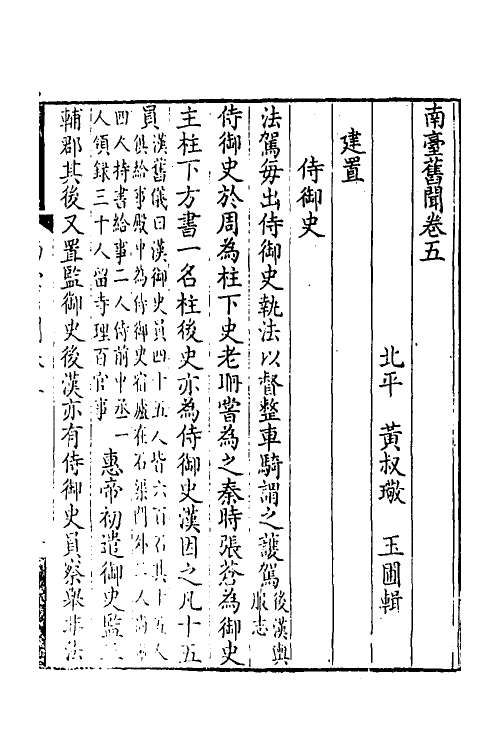 南臺舊聞卷五
北平 黃叔璥 玉圃輯
建置
侍御史
法駕每出侍御史執法以督整車騎謂之護駕後漢輿服志
侍御史於周為柱下史老聃嘗為之秦時張蒼為御史
主柱下方書一名柱後史亦為侍御史漢因之凡十五
員漢舊儀曰漢御史員四十五人皆六百石其十五人
俱給事殿中為侍御史宿廬在石渠門外二人尚
四人持書給事二人侍前中丞一
人領錄三十人留寺理百官事惠帝初遣御史監三
輔郡其後又置監御史後漢亦有侍御史員察舉非法